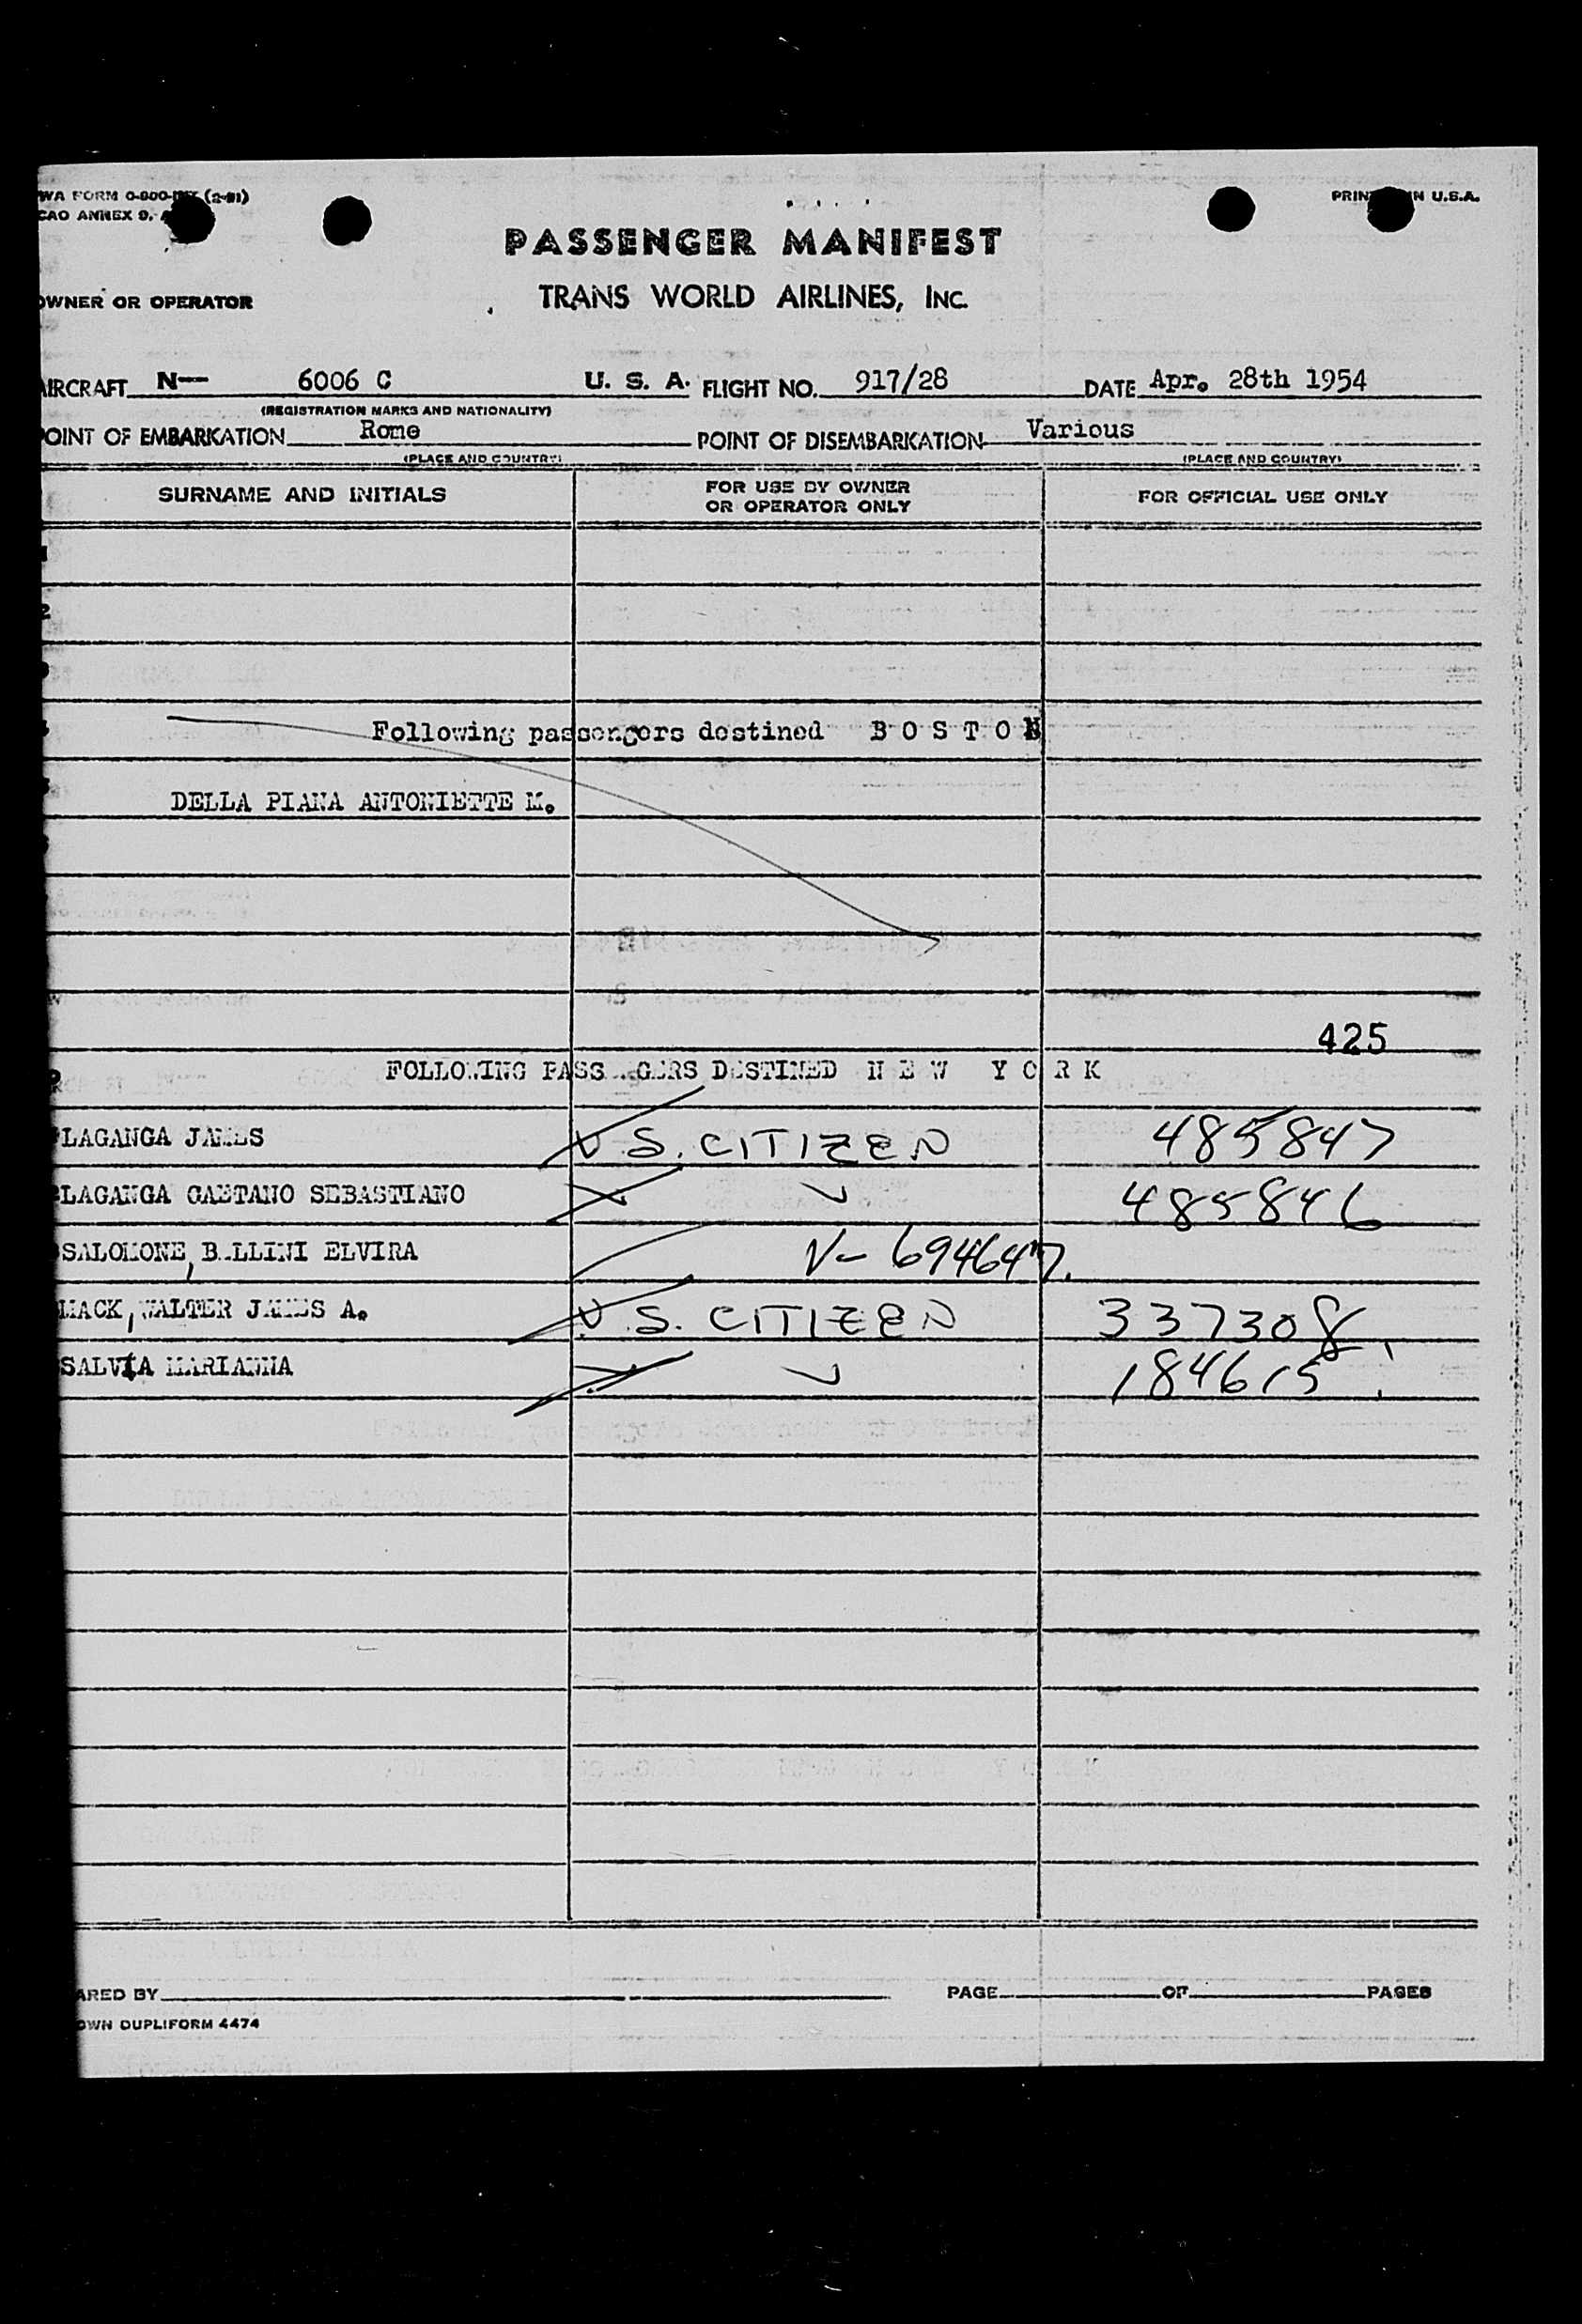 WA FORM 0-800- (2-51)
CAO ANNEX 9,
PRIN IN U.S.A.
PASSENGER MANIFEST
OWNER OR OPERATOR
TRANS WORLD AIRLINES, INC.
AIRCRAFT N— 6006 C U. S. A. FLIGHT NO. 917/28 DATE Apr. 28th 1954
(REGISTRATION MARKS AND NATIONALITY)
POINT OF EMBARKATION Rome POINT OF DISEMBARKATION Various
(PLACE AND COUNTRY) (PLACE AND COUNTRY)
SURNAME AND INITIALS FOR USE BY OWNER OR OPERATOR ONLY FOR OFFICIAL USE ONLY
Following passengers destined B O S T O N
DELLA PIANA ANTONIETTE M.
425
FOLLOWING PASSENGERS DESTINED N E W Y O R K
LAGANGA JAMES U.S. CITIZEN 485847
LAGANGA GAETANO SEBASTIANO 485846
SALOMONE, BELLINI ELVIRA V- 694647.
MACK, WALTER JAMES A. U.S. CITIZEN 337308
SALVIA MARIANNA 184615
ARED BY PAGE OF PAGES
OWN DUPLIFORM 4474